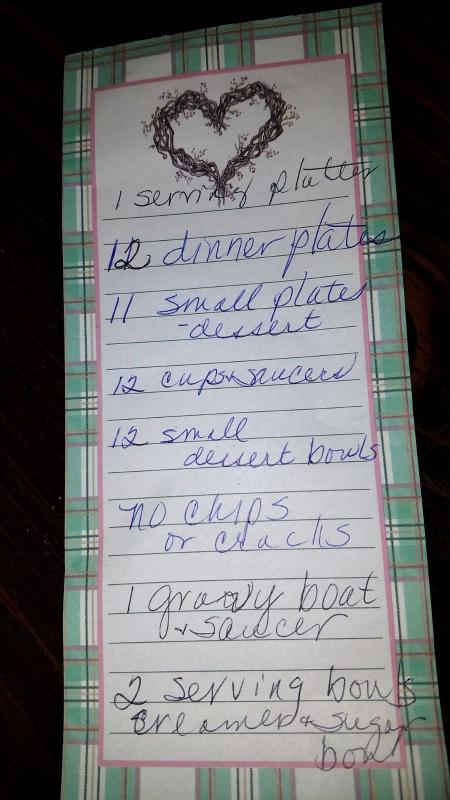 1 serving platter
12 dinner plates
11 small plates
-dessert
12 cups & saucers
12 small
dessert bowls
no chips
or cracks
1 gravy boat
& saucer
2 serving bowls
creamer & sugar
bowl